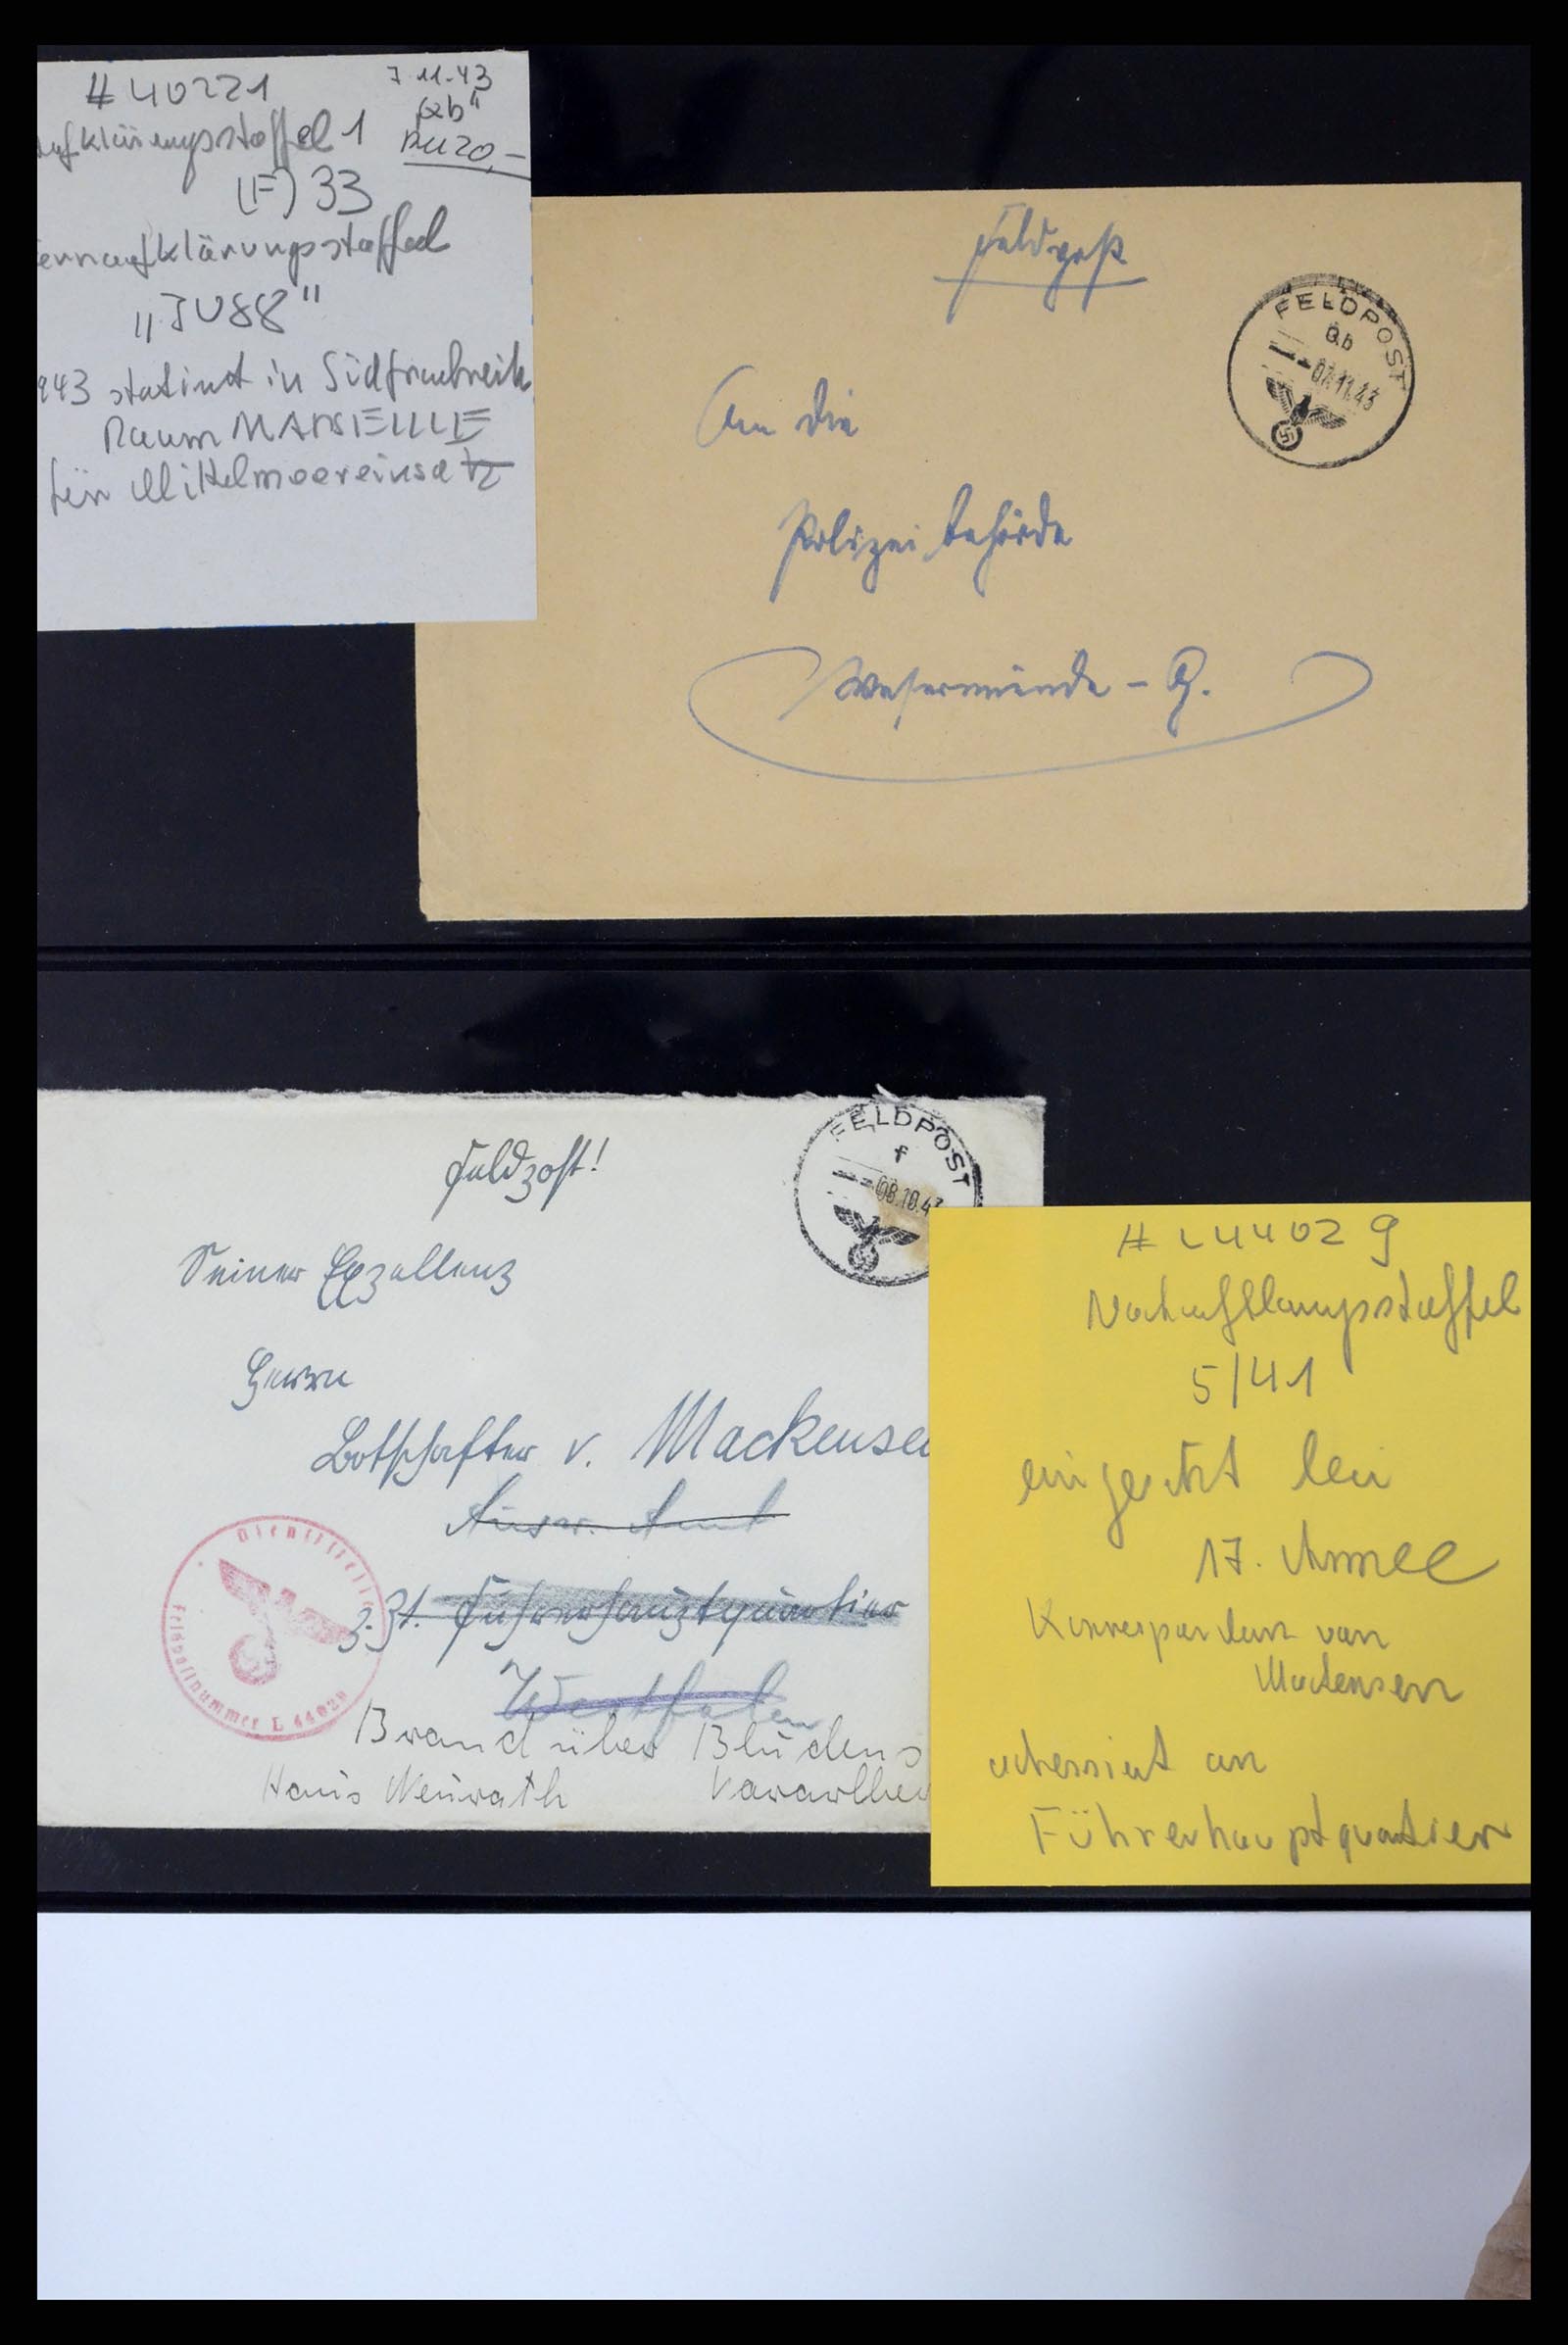 # 40221
7 11.43
"Qb"
ufklärungsstaffel 1
RM 20,–
(F) 33
ernaufklärungsstaffel
„JU88"
943 statiniert in Südfrankreich
Raum MARSEILLE
für Mittelmeereinsatz
Feldpost
FELDPOST
Qb
07.11.43
An die
Polizei behörde
Wesermünde – G.
Feldpost!
FELDPOST
f
08.10.43
Seiner Exzellenz
Herrn
Botschafter v. Mackensen
Ausw. Amt
z.Zt. Führerhauptquartier
Westfalen
Brand über Bludens
Hans Neurath Vorarlbe
Dienststelle
Feldpostnummer L 44029
# L44029
Nahaufklärungsstaffel
5/41
eingesetzt bei
17. Armee
Korrespondenz von
Mackensen
adressiert an
Führerhauptquartier